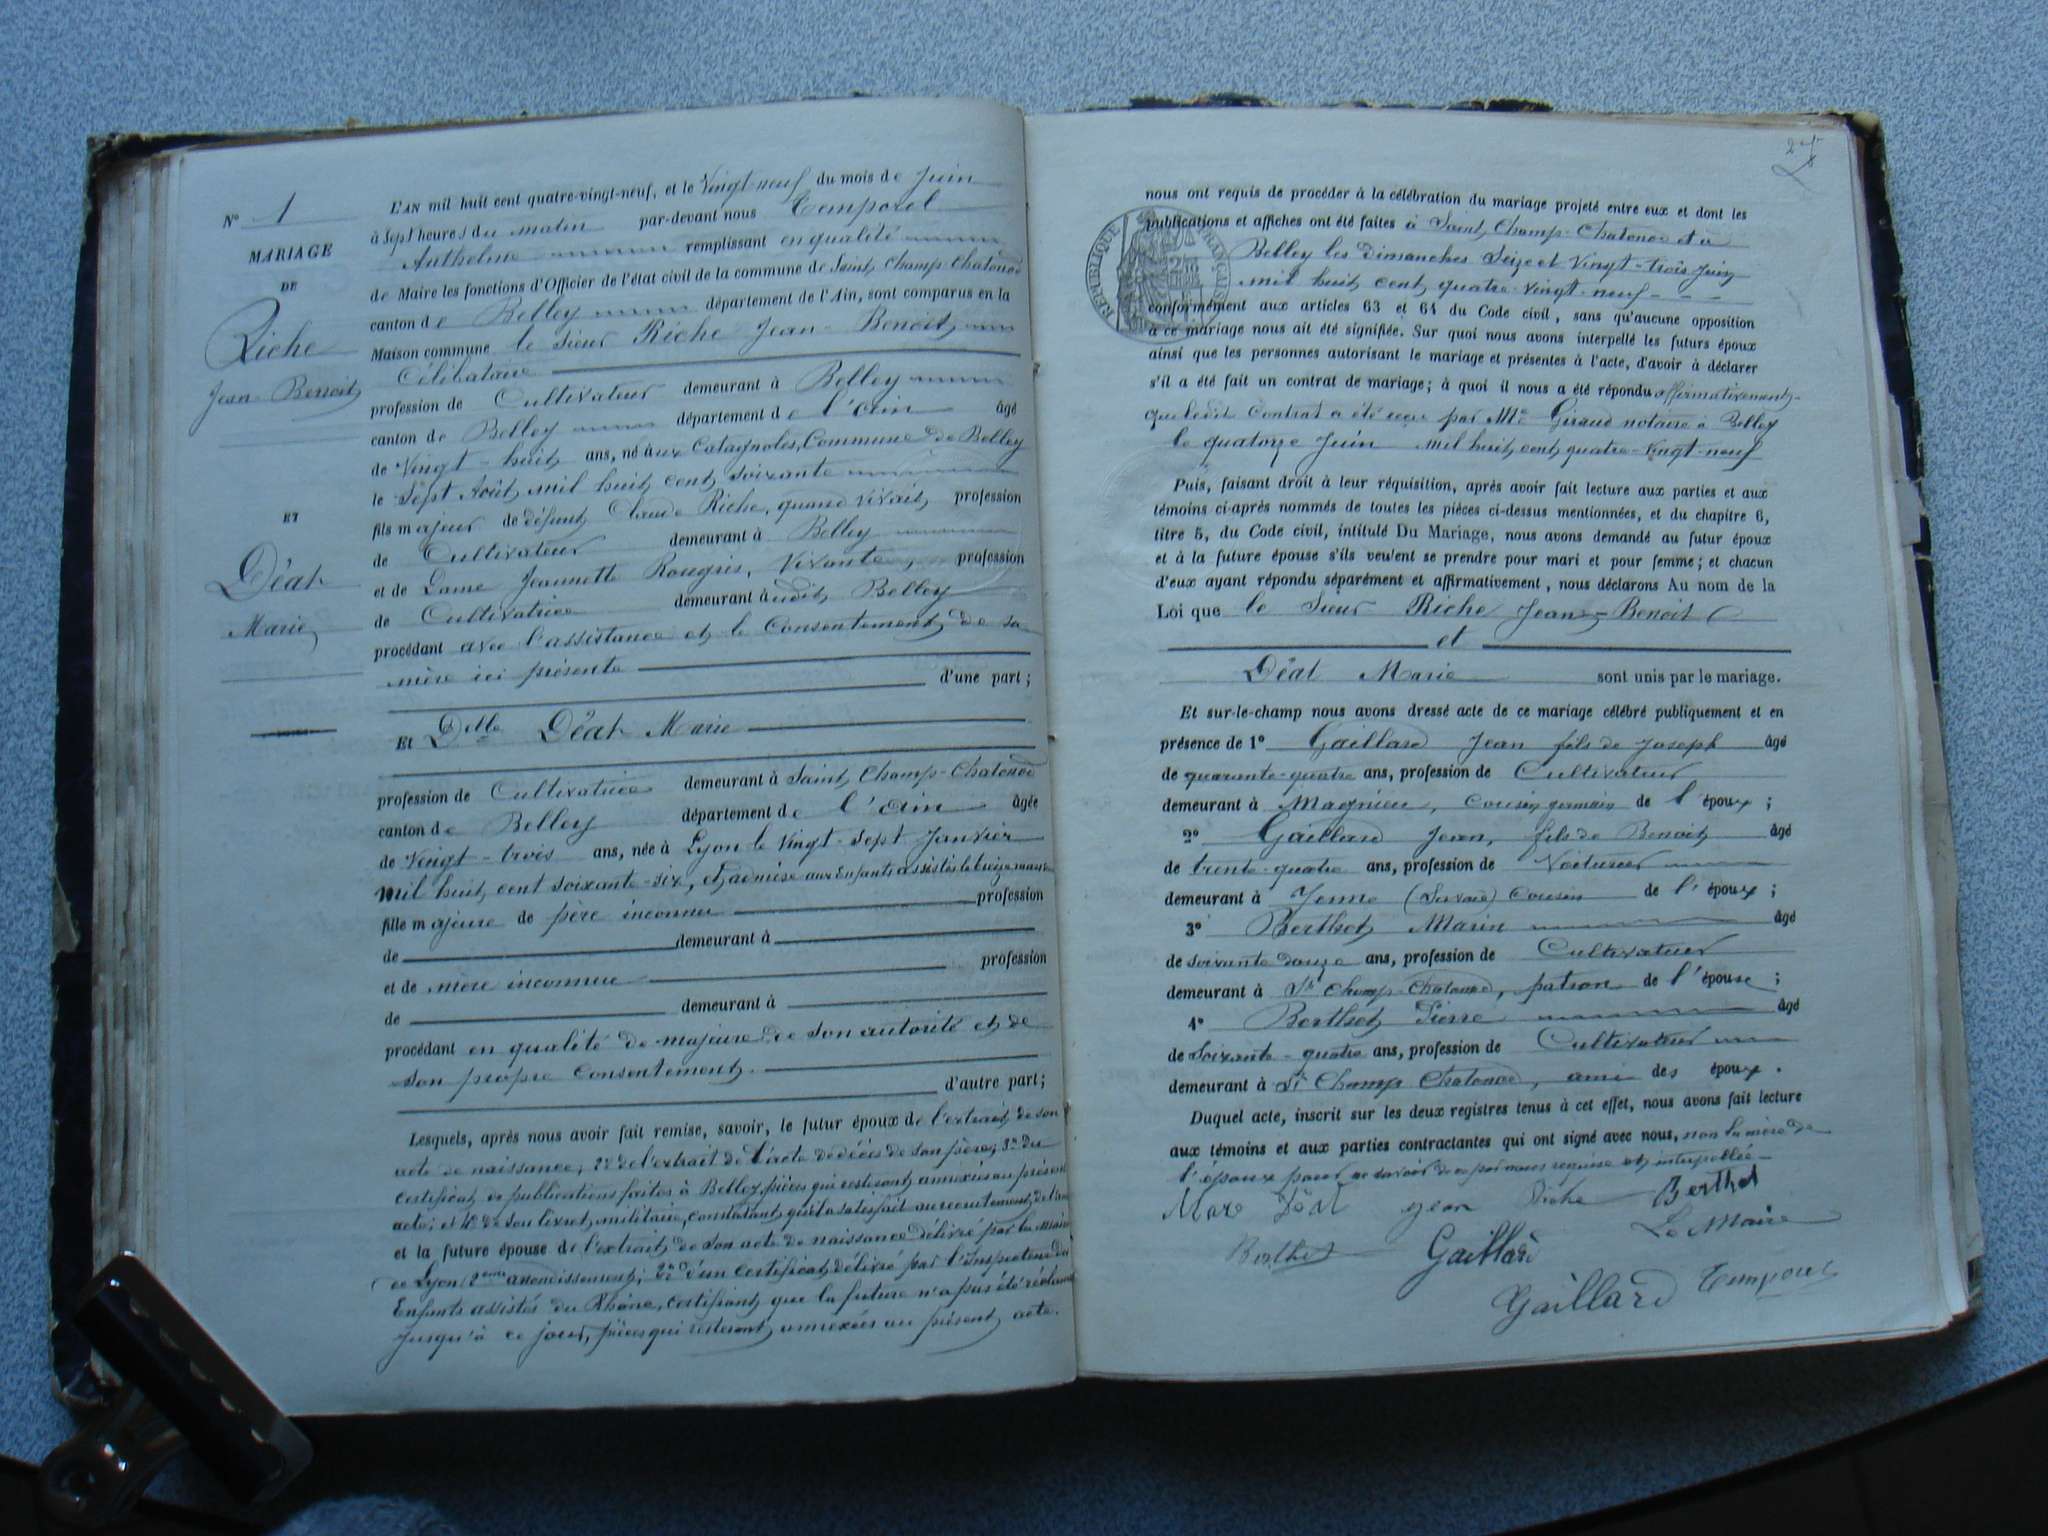 N° 1
MARIAGE
DE
Riche
Jean-Benoit
ET
Déat
Marie
L'AN mil huit cent quatre-vingt-neuf, et le Vingt-neuf du mois de Juin
à Sept heures du matin par-devant nous Temporel
Anthelme remplissant en qualité
de Maire les fonctions d'Officier de l'état civil de la commune de Saint Champ-Chatonod
canton de Belley département de l'Ain, sont comparus en la
Maison commune le sieur Riche Jean-Benoit
Célibataire
profession de Cultivateur demeurant à Belley
canton de Belley département de l'ain âgé
de Vingt-huit ans, né aux Catagnoles, Commune de Belley
le Sept Août mil huit cent soixante
fils majeur de défunt Claude Riche, quand vivait, profession
de Cultivateur demeurant à Belley
et de Dame Jeannette Rougris, Vivante, profession
de Cultivatrice demeurant audit Belley
procédant avec l'assistance et le Consentement de sa
mère ici présente
d'une part;
Et Delle Déat Marie
profession de Cultivatrice demeurant à Saint Champ-Chatonod
canton de Belley département de l'ain âgée
de Vingt-trois ans, née à Lyon le Vingt-Sept Janvier
mil huit cent soixante-six, et admise aux Enfants assistés le treize mars
fille majeure de père inconnu profession
de demeurant à
et de mère inconnue profession
de demeurant à
procédant en qualité de majeure de son autorité et de
son propre consentement.
d'autre part;
Lesquels, après nous avoir fait remise, savoir, le futur époux de l'extrait de son
acte de naissance; 2° de l'extrait de l'acte de décès de son père; 3° du
certificat de publications faites à Belley, pièces qui resteront annexées au présent
acte; et 4° de son livret militaire, constatant qu'il a satisfait au recrutement de l'armée
et la future épouse de l'extrait de son acte de naissance délivré par la mairie
de Lyon (2eme arrondissement; 2° d'un certificat délivré par l'Inspecteur des
Enfants assistés du Rhône, certifiant que la future n'a pas été réclamée
jusqu'à ce jour, pièces qui resteront annexées au présent acte.
nous ont requis de procéder à la célébration du mariage projeté entre eux et dont les
publications et affiches ont été faites à Saint Champ-Chatonod et à
Belley les dimanches Seize et Vingt-trois Juin
mil huit cent quatre-vingt-neuf
conformément aux articles 63 et 64 du Code civil, sans qu'aucune opposition
à ce mariage nous ait été signifiée. Sur quoi nous avons interpellé les futurs époux
ainsi que les personnes autorisant le mariage et présentes à l'acte, d'avoir à déclarer
s'il a été fait un contrat de mariage; à quoi il nous a été répondu affirmativement
que ledit Contrat a été reçu par Me Giraud notaire à Belley
le quatorze Juin mil huit cent quatre-vingt-neuf
Puis, faisant droit à leur réquisition, après avoir fait lecture aux parties et aux
témoins ci-après nommés de toutes les pièces ci-dessus mentionnées, et du chapitre 6,
titre 5, du Code civil, intitulé Du Mariage, nous avons demandé au futur époux
et à la future épouse s'ils veulent se prendre pour mari et pour femme; et chacun
d'eux ayant répondu séparément et affirmativement, nous déclarons Au nom de la
Loi que le Sieur Riche Jean-Benoit
et
Déat Marie sont unis par le mariage.
Et sur-le-champ nous avons dressé acte de ce mariage célébré publiquement et en
présence de 1° Gaillard Jean fils de Joseph âgé
de quarante-quatre ans, profession de Cultivateur
demeurant à Magnieu, cousin germain de l'époux;
2° Gaillard Jean, fils de Benoit âgé
de trente-quatre ans, profession de Voiturier
demeurant à Yenne (Savoie) cousin de l'époux;
3° Berthet Marin âgé
de soixante douze ans, profession de Cultivateur
demeurant à St Champ-Chatonod, patron de l'épouse;
4° Berthet Pierre âgé
de Soixante-quatre ans, profession de Cultivateur
demeurant à St Champ Chatonod, ami des époux.
Duquel acte, inscrit sur les deux registres tenus à cet effet, nous avons fait lecture
aux témoins et aux parties contractantes qui ont signé avec nous, non la mère de
l'époux pour ne savoir de ce par nous requise et interpellée
Mare Déat Jean Riche Berthet
Le Maire
Berthet Gaillard
Gaillard Temporel
RÉPUBLIQUE FRANÇAISE